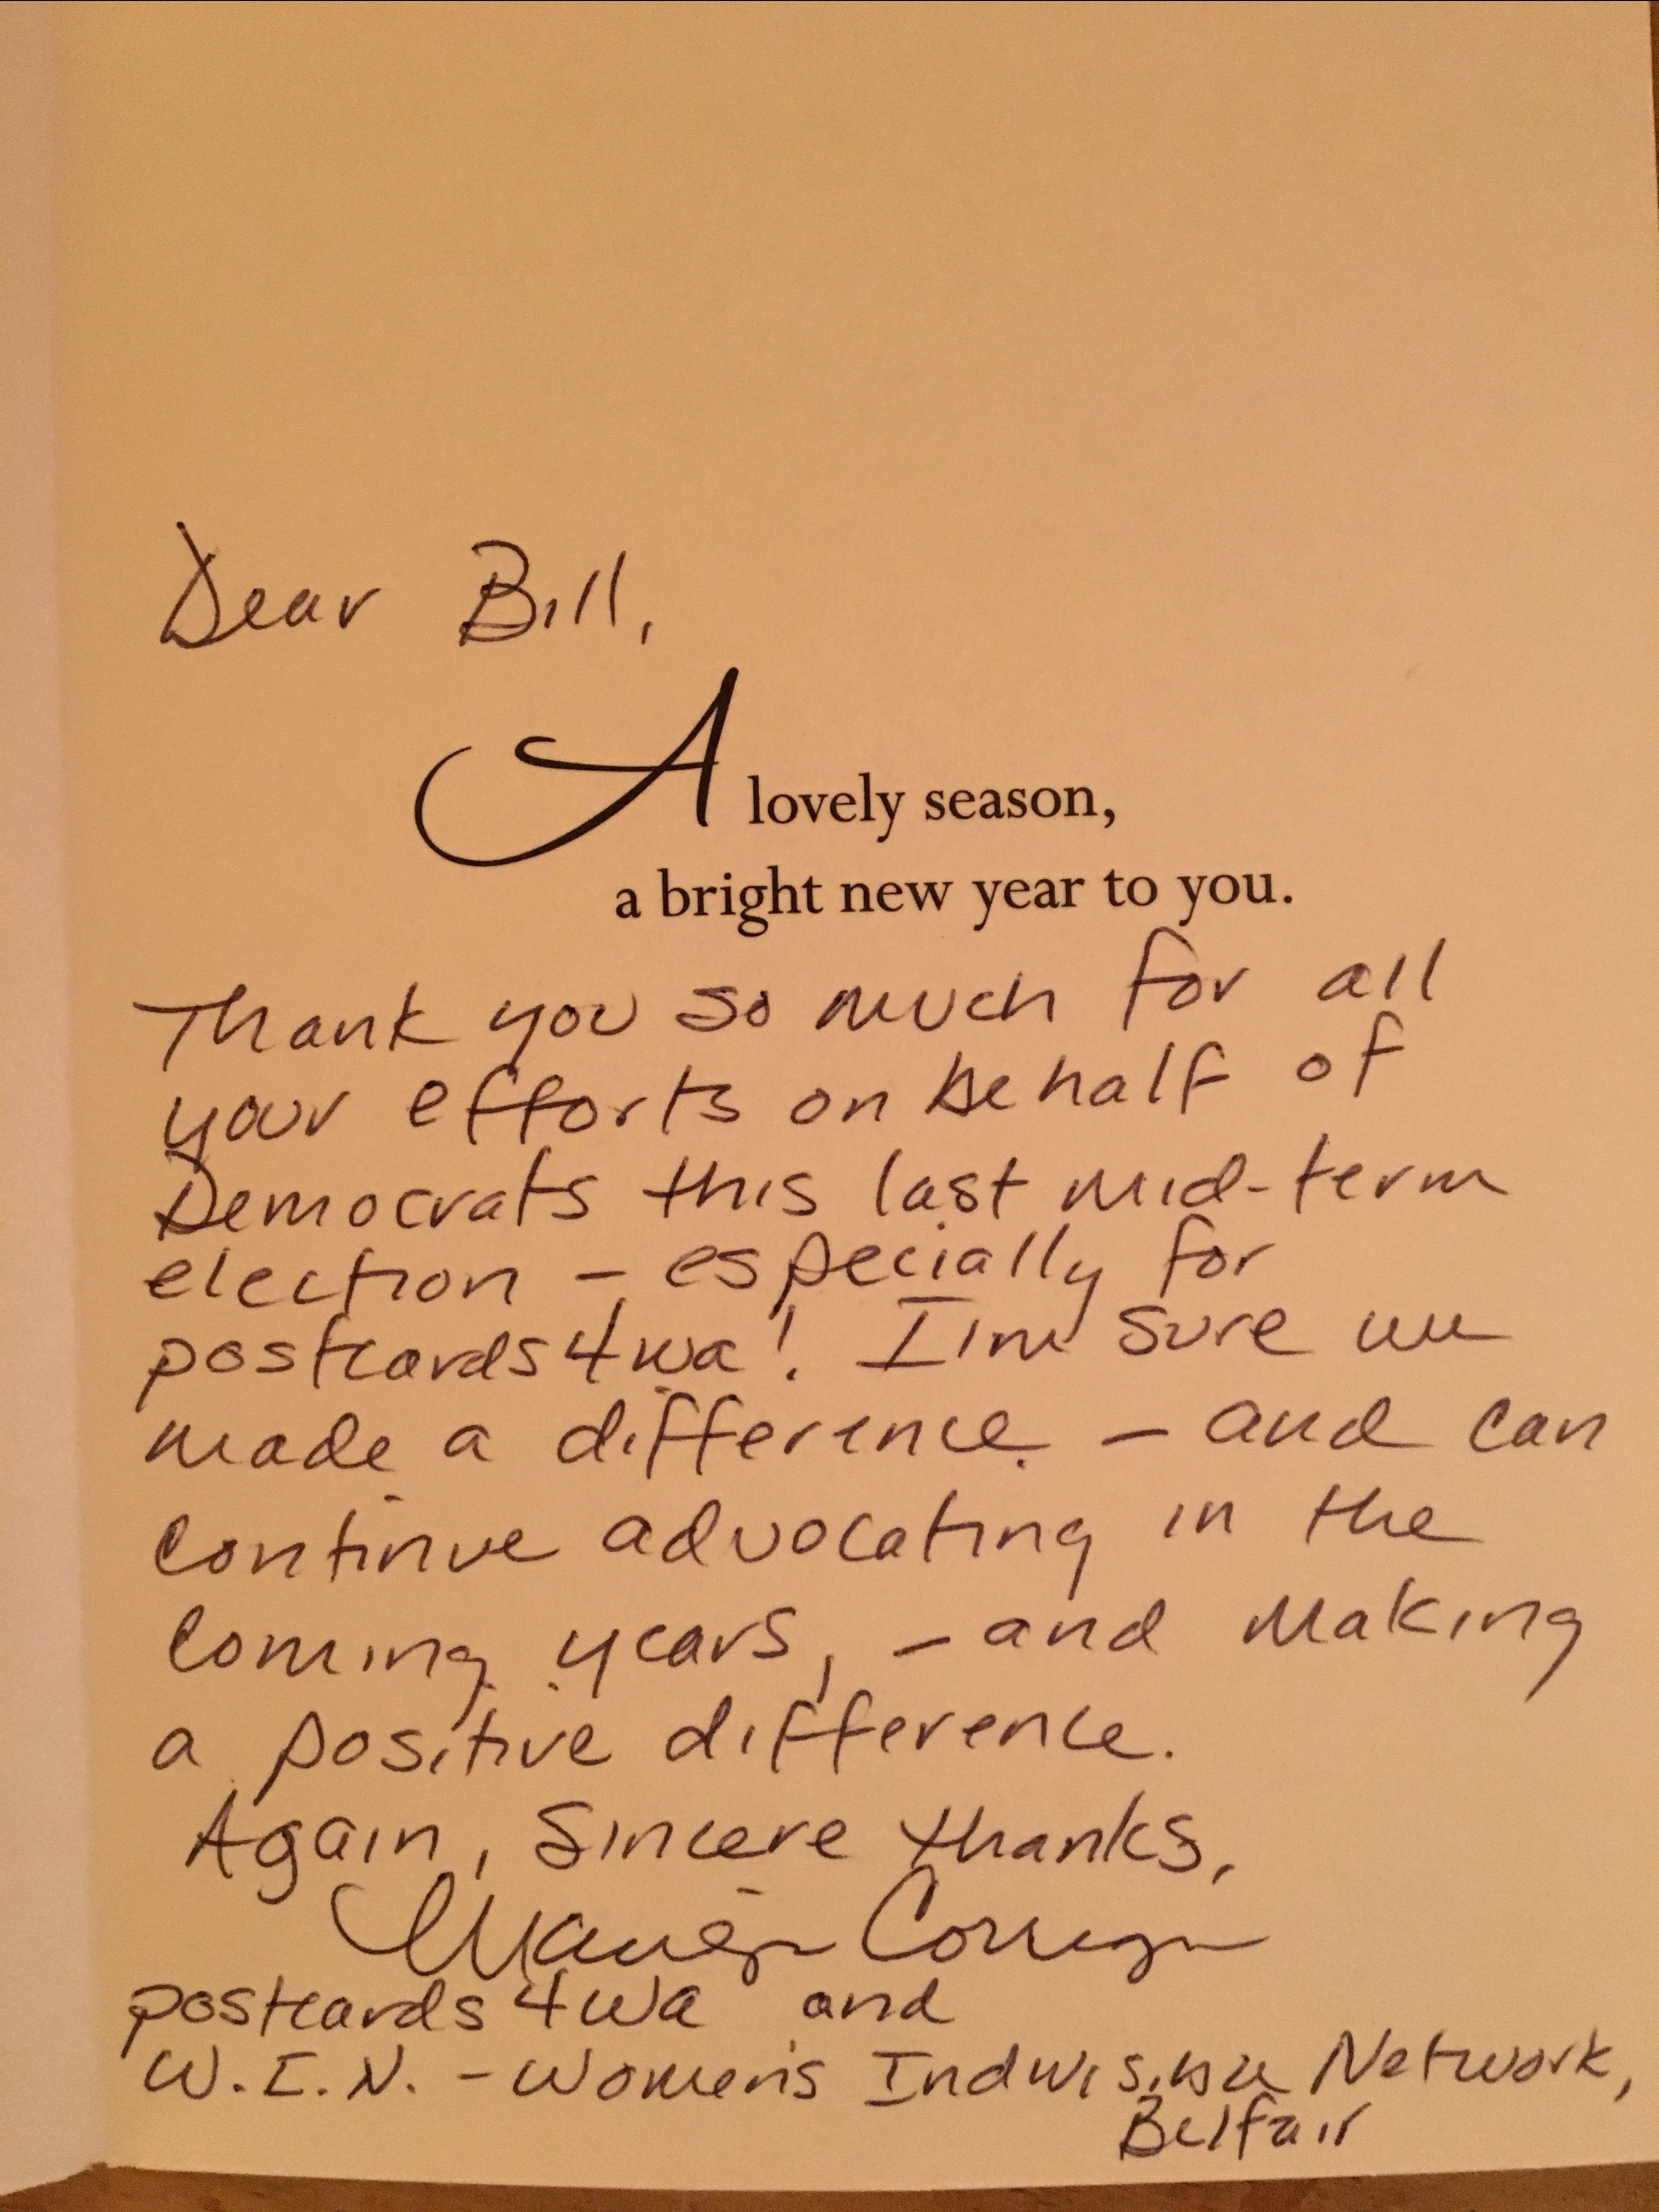 Dear Bill,
A lovely season,
a bright new year to you.
Thank you so much for all
your efforts on behalf of
Democrats this last mid-term
election – especially for
postcards4wa! I'm sure we
made a difference – and can
continue advocating in the
coming years, – and making
a positive difference.
Again, Sincere thanks,
postcards4wa and
W.I.N. – Women's Indivisible Network,
Belfair